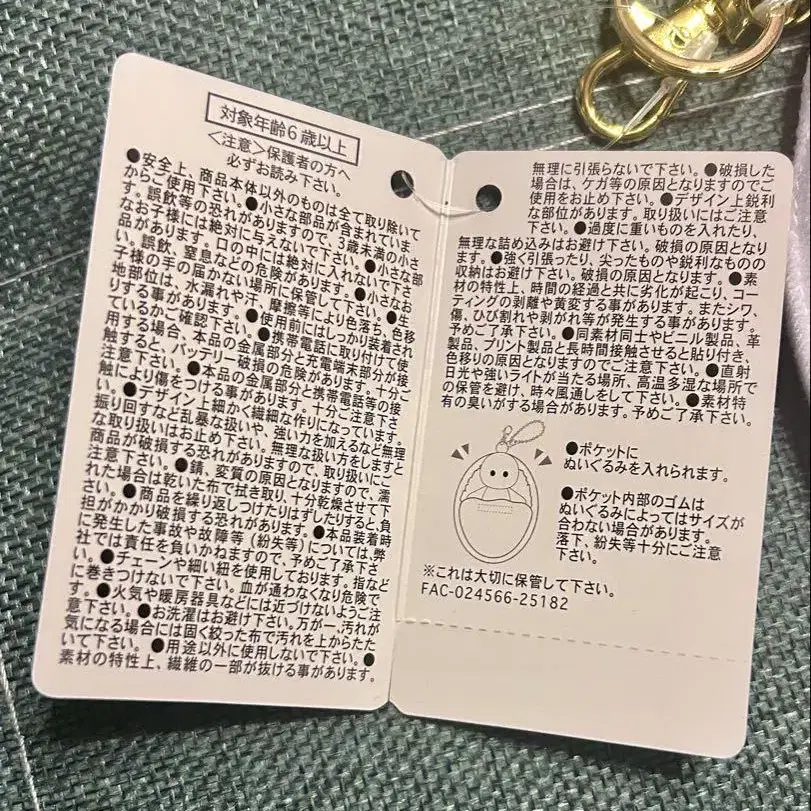 対象年齢6歳以上
＜注意＞保護者の方へ
必ずお読み下さい。
●安全上、商品本体以外のものは全て取り除いて
からご使用下さい。●小さな部品が含まれていま
す。誤飲等の恐れがありますので、3歳未満の小さ
なお子様には絶対に与えないで下さい。●小さな部
品があります。口の中には絶対に入れないで下さ
い。誤飲、窒息などの危険があります。●小さなお
子様の手の届かない場所に保管して下さい。●生
地部位は、水漏れや汗、摩擦等により色落ち、色移
りする事があります。●使用前にはしっかり装着され
ているかご確認下さい。●携帯電話に取り付けて使
用する場合、本品の金属部分と充電端末部分が接
触すると、バッテリー破損の危険があります。十分ご
注意下さい。●本品の金属部分と携帯電話等の接
触により傷をつける事があります。十分ご注意下さ
い。●デザイン上細かく繊細な作りになっています。
振り回すなど乱暴な扱いや、強い力を加えるなど無理
な取り扱いはお止め下さい。無理な扱い方をしますと
商品が破損する恐れがありますので、取り扱いにご
注意下さい。●錆、変質の原因となりますので、濡
れた場合は乾いた布で拭き取り、十分乾燥させて下
さい。●商品を繰り返しつけたりはずしたりすると、負
担がかかり破損する恐れがあります。●本品装着時
に発生した事故や故障等（紛失等）については、弊
社では責任を負いかねますので、予めご了承下さ
い。●チェーンや細い紐を使用しております。指など
に巻きつけないで下さい。血が通わなくなり危険で
す。●火気や暖房器具などには近づけないようご注
意下さい。●お洗濯はお避け下さい。万が一、汚れが
気になる場合には固く絞った布で汚れを上からたた
いて下さい。●用途以外に使用しないで下さい。●
素材の特性上、繊維の一部が抜ける事があります。
無理に引張らないで下さい。●破損した
場合は、ケガ等の原因となりますのでご
使用をお止め下さい。●デザイン上鋭利
な部位があります。取り扱いにはご注意
下さい。●過度に重いものを入れたり、
無理な詰め込みはお避け下さい。破損の原因となり
ます。●強く引張ったり、尖ったものや鋭利なものの
収納はお避け下さい。破損の原因となります。●素
材の特性上、時間の経過と共に劣化が起こり、コー
ティングの剥離や黄変する事があります。またシワ、
傷、ひび割れや剥がれ等が発生する事があります。
予めご了承下さい。●同素材同士やビニル製品、革
製品、プリント製品と長時間接触させると貼り付き、
色移りの原因となりますのでご注意下さい。●直射
日光や強いライトが当たる場所、高温多湿な場所で
の保管を避け、時々風通しをして下さい。●素材特
有の臭いがする場合があります。予めご了承下さい。
●ポケットに
ぬいぐるみを入れられます。
●ポケット内部のゴムは
ぬいぐるみによってはサイズが
合わない場合があります。
落下、紛失等十分にご注意
下さい。
※これは大切に保管して下さい。
FAC-024566-25182